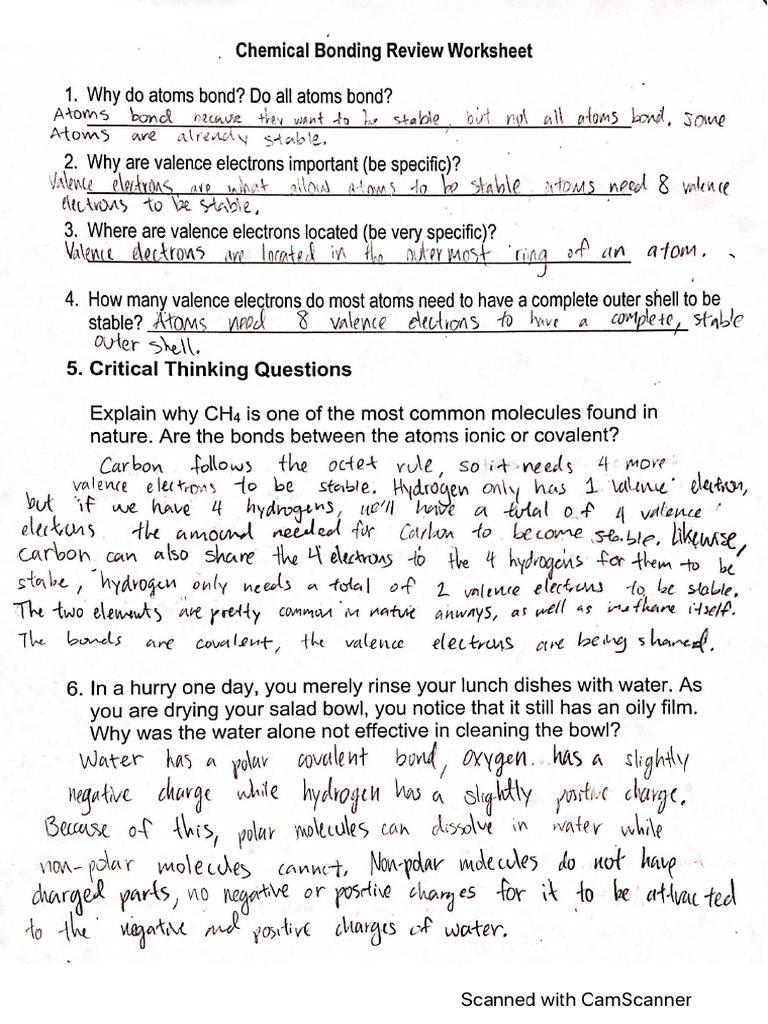 Chemical Bonding Review Worksheet
1. Why do atoms bond? Do all atoms bond?
Atoms bond because they want to be stable, but not all atoms bond. Some
Atoms are already stable.
2. Why are valence electrons important (be specific)?
Valence electrons are what allow atoms to be stable atoms need 8 valence
electrons to be stable.
3. Where are valence electrons located (be very specific)?
Valence electrons are located in the outermost ring of an atom.
4. How many valence electrons do most atoms need to have a complete outer shell to be
stable? Atoms need 8 valence electrons to have a complete, stable
outer shell.
5. Critical Thinking Questions
Explain why CH₄ is one of the most common molecules found in
nature. Are the bonds between the atoms ionic or covalent?
Carbon follows the octet rule, so it needs 4 more
valence electrons to be stable. Hydrogen only has 1 valence electron,
but if we have 4 hydrogens, we'll have a total of 4 valence
electrons the amound needed for Carbon to become stable. Likewise,
Carbon can also share the 4 electrons to the 4 hydrogens for them to be
stabe, hydrogen only needs a total of 2 valence electrons to be stable.
The two elements are pretty common in nature anways, as well as methane itself.
The bonds are covalent, the valence electrons are being shared.
6. In a hurry one day, you merely rinse your lunch dishes with water. As
you are drying your salad bowl, you notice that it still has an oily film.
Why was the water alone not effective in cleaning the bowl?
Water has a polar covalent bond, oxygen has a slightly
negative charge while hydrogen has a slightly positive charge.
Because of this, polar molecules can dissolve in water while
non-polar molecules cannot. Non-polar molecules do not have
charged parts, no negative or positive charges for it to be attracted
to the negative and positive charges of water.
Scanned with CamScanner